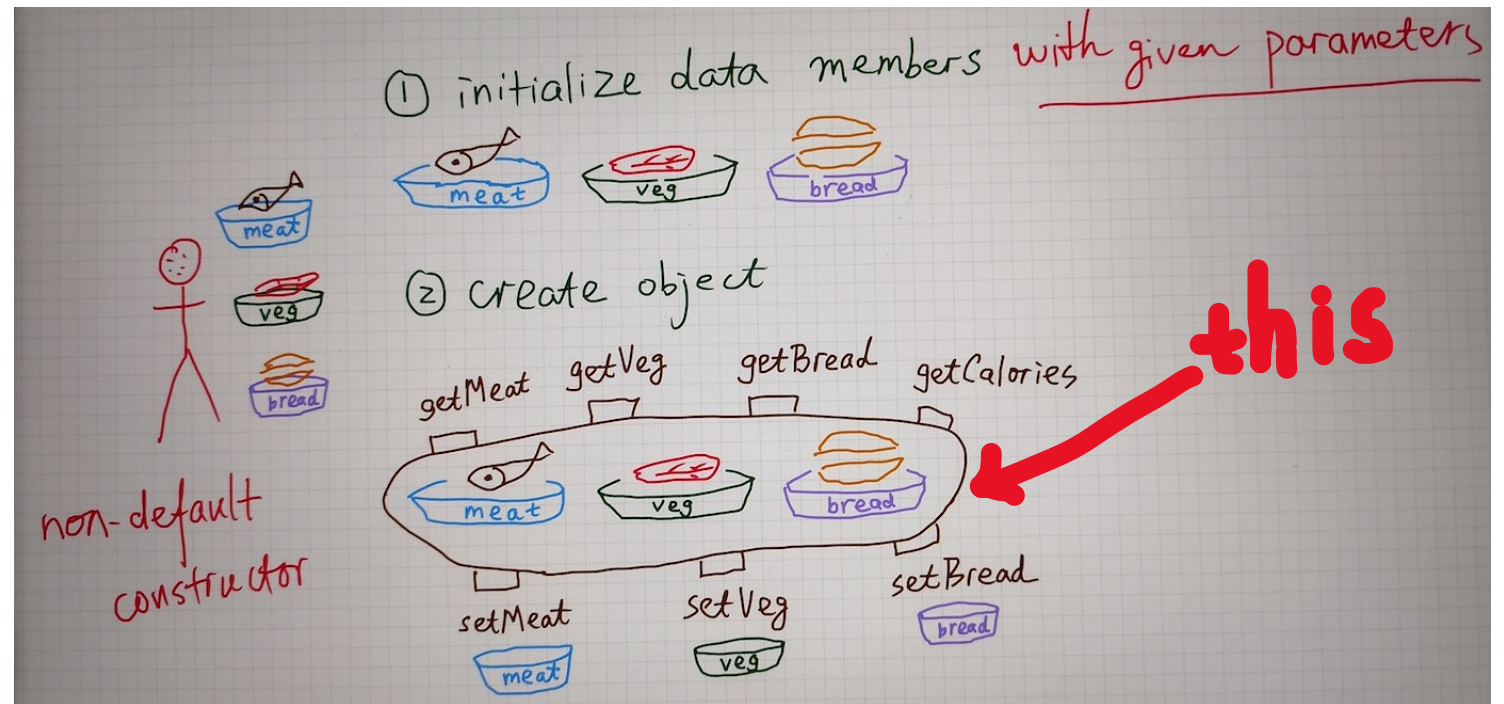 ① initialize data members with given parameters
meat veg bread
meat
veg
bread
② create object
this
getMeat getVeg getBread getCalories
meat veg bread
non-default
constructor
setMeat setVeg setBread
meat veg bread